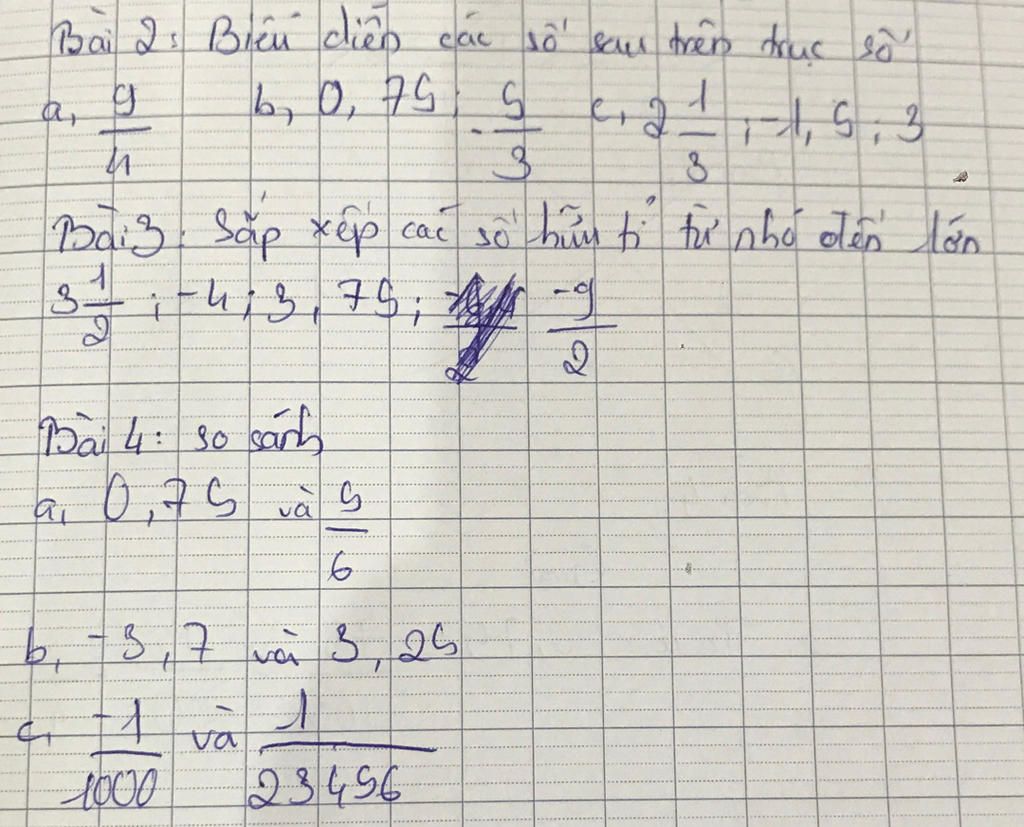 Bài 2: Biểu diễn các số sau trên trục số
a, 9/4 b, 0,75; -5/3 c, 2 1/3; -1,5; 3
Bài 3: Sắp xếp các số hữu tỉ từ nhỏ đến lớn
3 1/2; -4; 3,75; -9/2
Bài 4: so sánh
a, 0,75 và 5/6
b, -3,7 và 3,25
c, -1/1000 và 1/23456